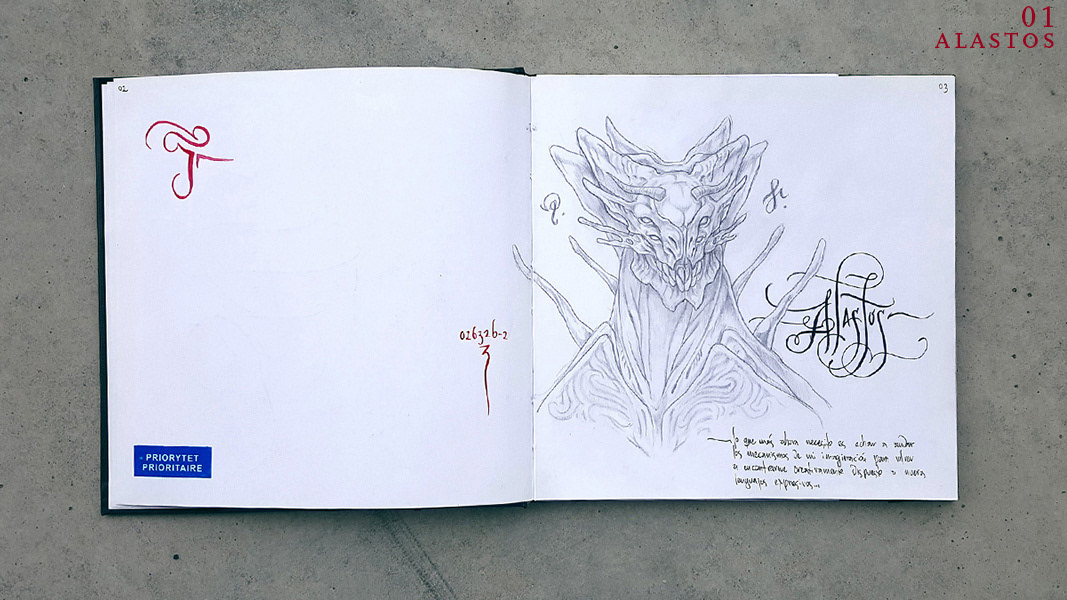 01
ALASTOS
02
03
02632b-2
Alastos
PRIORYTET
PRIORITAIRE
lo que más ahora necesito es echar a andar
los mecanismos de mi imaginación para volver
a encontrarme creativamente dispuesto a nuevos
lenguajes expresivos...